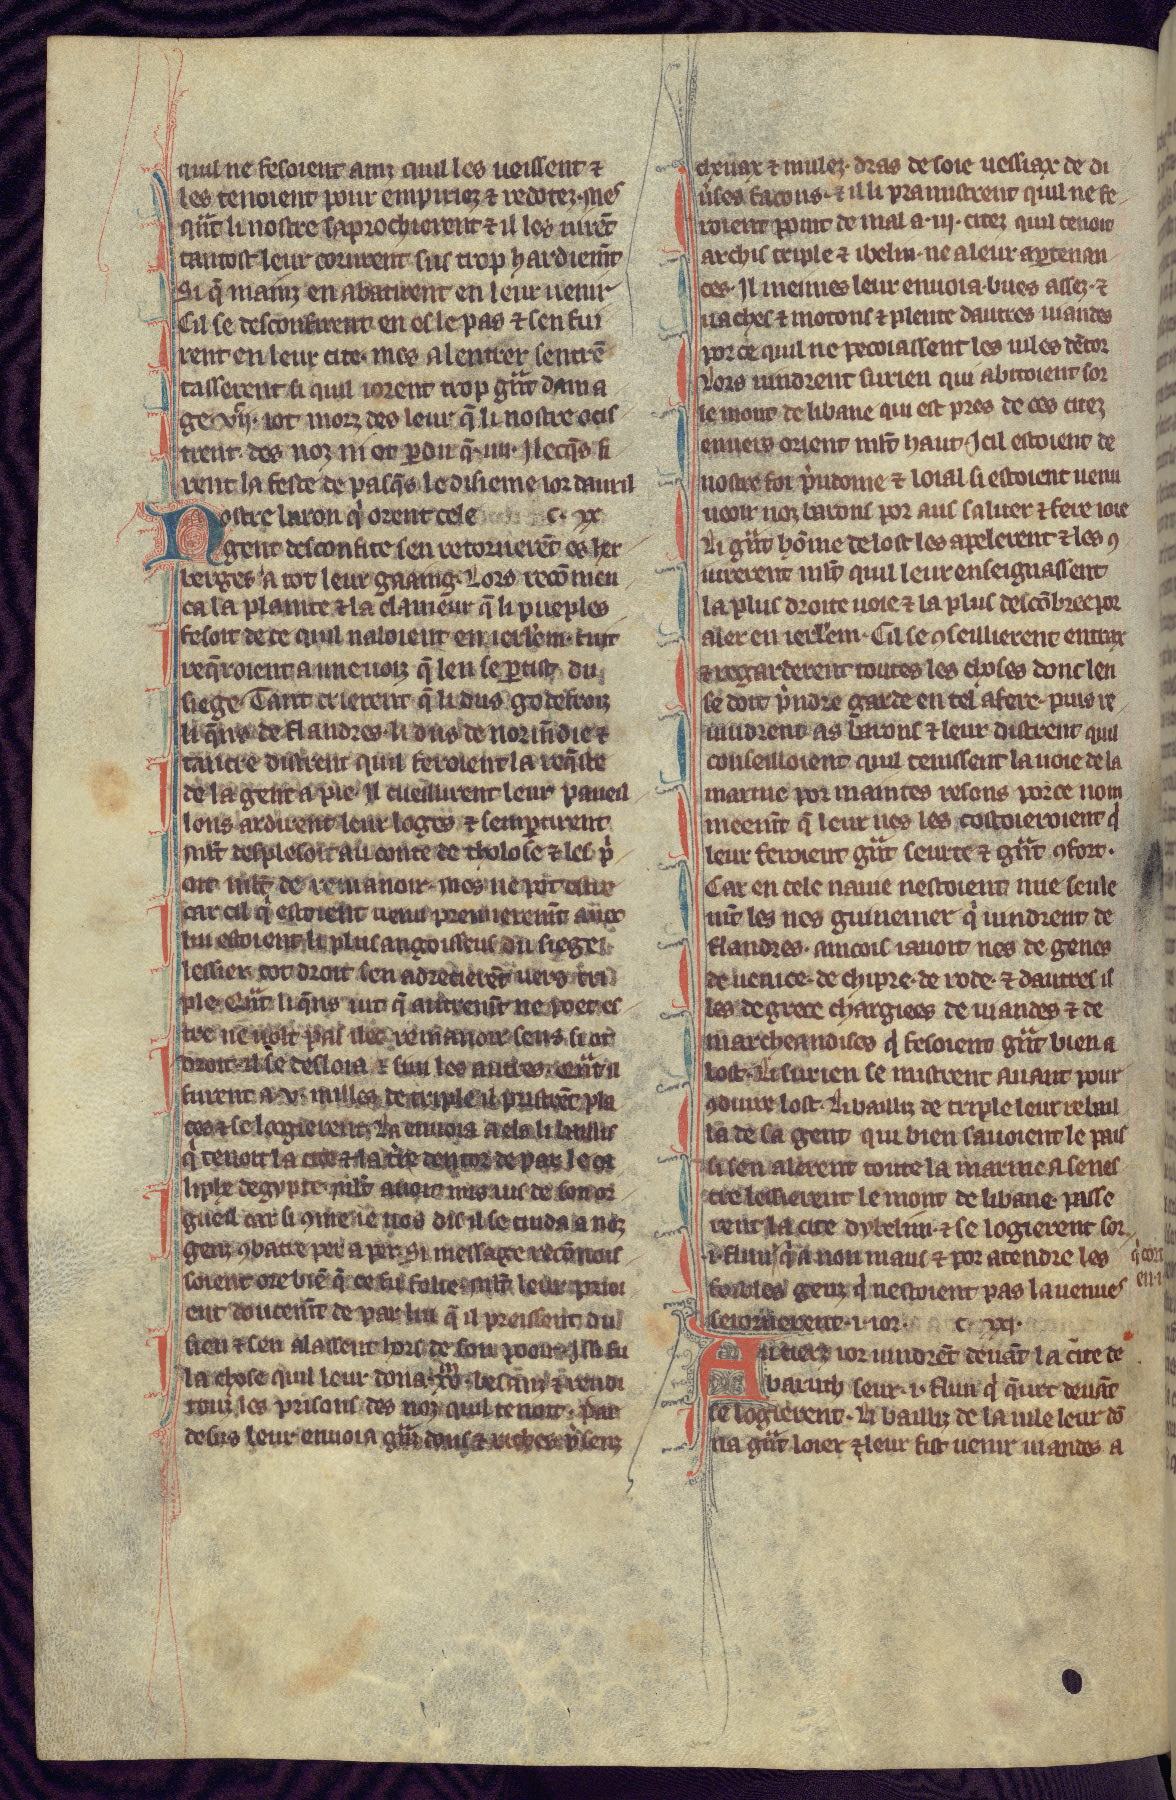 quil ne fesoient ainz quil les ueissent ⁊
les tenoient pour empiriez ⁊ redotez. mes
qͣnt li nostre saprochierent ⁊ il les uirẽt
tantost leur corurent sus trop hardiem̃t
Si q̃ mainz en abatirent en leur uenir
Cil se desconfirent en es le pas ⁊ sen fui
rent en leur cite. mes a lentrer sentrẽ
tasserent si quil iorent trop gͣnt dama
ge. vij. iot morz des leur q̃ li nostre ocis
trent. des noz ni ot ꝑdu q̃ .iiij. Ilecq̃s fi
rent la feste de pasq̃s le disieme ior dauril
Nostre baron qͥ orent cele c. xx
gent desconfite sen retornerẽt es her
berges a tot leur gaaing. Lors recõmen
ca la plainte ⁊ la clameur q̃ li pueples
fesoit de ce quil naloient en ierľem. tuit
req̃roient a une uoiz q̃ len se ꝑtist du
siege. Tant crierent q̃ li dus godefroiz
li q̃ns de flandres. li dus de normãdie ⁊
tancre distrent quil feroient la req̃ste
de la gent a pie. Il cueillirent leur paueil
lons ardirent leur loges ⁊ sempartirent
ml̃t desplesoit au conte de tholose ⁊ les pͥ
oit ml̃t de remanoir. mes ne pot estre
car cil qͥ estoient uenu premierem̃t auec
lui estoient li plus angoisseus du siege
lessier. tot droit sen adrecierẽt uers tri
ple. Qͣnt li q̃ns uit q̃ autrem̃t ne poet es
tre ne uolt pas ilec remanoir sens. si ot
droit. il se desloia ⁊ suiui les autres. Qͣnt il
furent a .v. milles de triple il pristrẽt pla
ces ⁊ se logierent. La enuoia a els li baillis
qͥ tenoit la cite ⁊ la t̃re dentor de par le ca
liphe degypte. ml̃t auoit mis ius de son or
gueil car si ꝯme ie uos dis il se cuida a noz
genz ꝯbatre per a per. Si message recõnois
soient ore biẽ q̃ ce fu folie. ml̃t leur prioi
ent doucem̃t de par lui q̃ il preissent du
sien ⁊ sen alassent hors de son pooir. Issi fu
la chose quil leur dona .xv.ᵐ besanz ⁊ rendi
touz les prisons des noz quil tenoit. par
desus leur enuoia gͣnz dons ⁊ riches p̃senz
cheuax ⁊ mulez. dras de soie uessiax de di
ũses facons. ⁊ il li pramistrent quil ne fe
roient point de mal a .iij. citez quil tenoit
archis triple ⁊ ibelin. ne a leur apartenan
ces. Il meimes leur enuoia bues assez. ⁊
uaches ⁊ motons ⁊ plente dautres uiandes
por ce quil ne pecoiassent les uiles dẽtor
Lors uindrent surien qui abitoient sor
le mont de libane qui est pres de ces citez
enuers orient ml̃t haut. Icil estoient de
nostre foi pͥudome ⁊ loial si estoient uenu
ueoir noz barons por aus saluer ⁊ fere ioie
Li gͣnt hõme de lost les apelerent ⁊ les ꝯ
iurerent ml̃t quil leur enseignassent
la plus droite uoie ⁊ la plus descõbree por
aler en ierľem. Cil se ꝯseillierent entrax
⁊ regarderent toutes les choses donc len
se doit pͥndre garde en tel afere. puis re
uindrent as barons ⁊ leur distrent quil
conseilloient quil tenissent la uoie de la
marine por maintes resons porce nom
meem̃t q̃ leur nes les costoieroient qͥ
leur feroient gͣnt seurte ⁊ gͣnt ꝯfort.
Car en cele nauie nestoient mie seule
m̃t les nes guinemer qͥ uindrent de
flandres. aincois iauoit nes de genes
de uenice. de chipre. de rode. ⁊ dautres il
les de grece chargiees de uiandes ⁊ de
marcheandises qͥ fesoient gͣnt bien a
lost. Li surien se mistrent auant pour
ꝯduire lost. Li bailliz de triple leur rebail
la de sa gent qui bien sauoient le pais
si sen alerent toute la marine a senes
tre lessierent le mont de libane. passe
rent la cite dybelin. ⁊ se logierent sor
.i. flun qͥ a non maus ⁊ por atendre les
foibles genz qͥ nestoient pas la uenues
seiornerent .i. ior. c. xxj.
Au tierz ior uindrẽt deuãt la cite de
baruth seur .i. flun qͥ q̃urt deuãt
se logierent. Li bailliz de la uile leur dõ
na gͣnt loier ⁊ leur fist uenir uiandes a